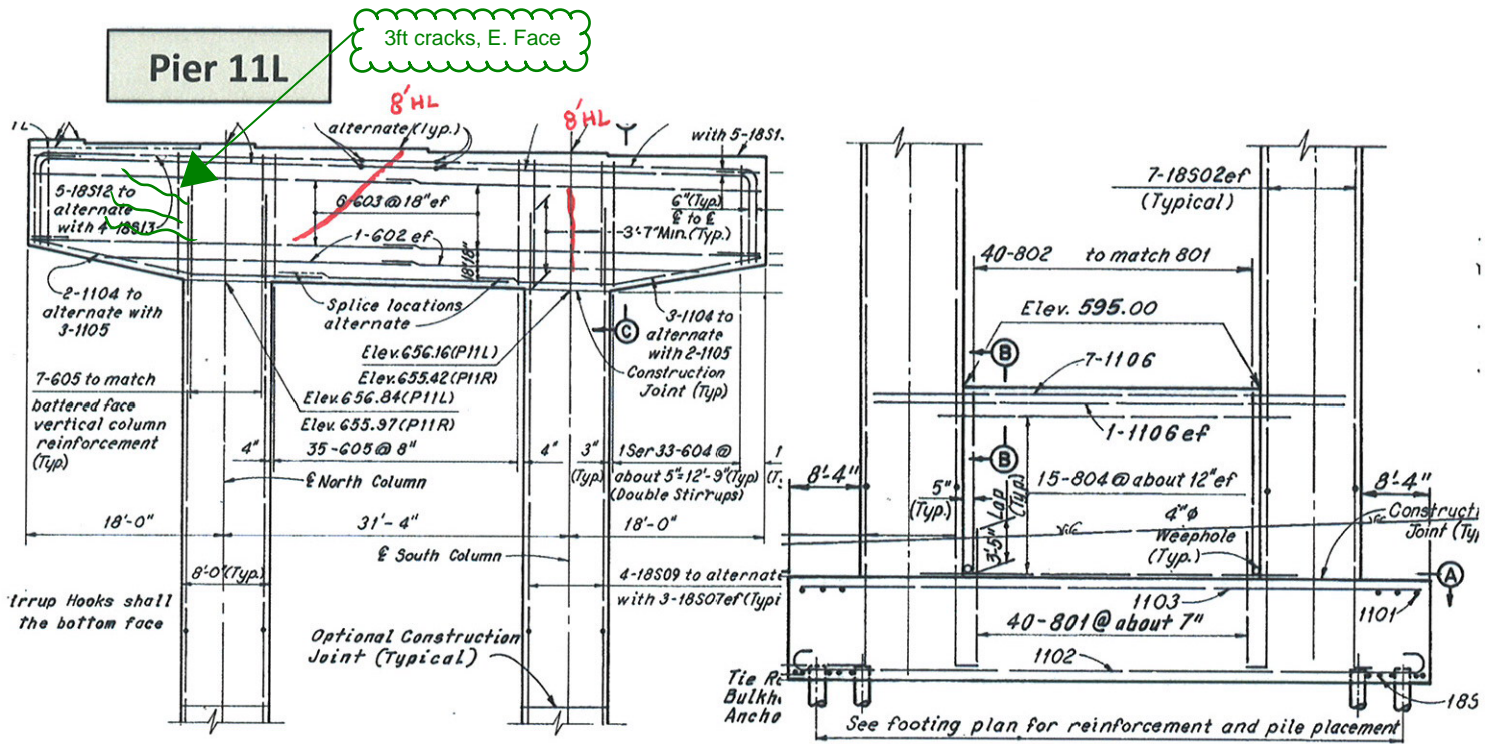 3ft cracks, E. Face
Pier 11L
8'HL
8'HL
alternate (Typ.)
with 5-18S1
5-18S12 to
alternate
with 4-18S13
6-603@18"ef
1-602 ef
18"
18"
6"(Typ.)
℄ to ℄
3'-7"Min.(Typ.)
2-1104 to
alternate with
3-1105
Splice locations
alternate
3-1104 to
alternate
with 2-1105
C
Construction
Joint (Typ)
Elev.656.16(P11L)
Elev.655.42(P11R)
Elev.656.84(P11L)
Elev.655.97(P11R)
7-605 to match
battered face
vertical column
reinforcement
(Typ.)
4"
35-605@8"
4"
3"
(Typ.)
1Ser 33-604@
about 5"=12'-9"(Typ)
(Double Stirrups)
℄ North Column
18'-0"
31'-4"
18'-0"
℄ South Column
8'-0"(Typ.)
4-18S09 to alternate
with 3-18S07ef(Typi
irrup Hooks shall
the bottom face
Optional Construction
Joint (Typical)
7-18S02ef
(Typical)
40-802 to match 801
Elev. 595.00
B
7-1106
1-1106ef
B
8'-4"
5"
(Typ.)
3'-5" Lap
(Typ.)
15-804@about 12"ef
8'-4"
4"ø
Weephole
(Typ.)
Constructi
Joint (Ty
A
1103
1101
40-801@about 7"
1102
18S
Tie Ro
Bulkh
Ancho
See footing plan for reinforcement and pile placement